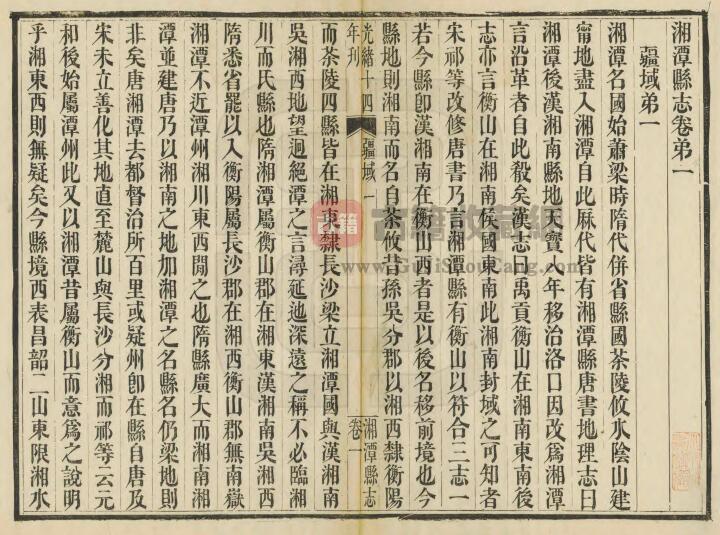 湘潭縣志卷弟一
疆域弟一
湘潭名國始蕭梁時隋代併省縣國茶陵攸水陰山建
甯地盡入湘潭自此厤代皆有湘潭縣唐書地理志曰
湘潭後漢湘南縣地天寶八年移治洛口因改爲湘潭
言沿革者自此殽矣漢志曰禹貢衡山在湘南東南後
志亦言衡山在湘南侯國東南此湘南封域之可知者
宋祁等改修唐書乃言湘潭縣有衡山以符合三志一
若今縣卽漢湘南在衡山西者是以後名移前境也今
縣地則湘南而名自茶攸昔孫吳分郡以湘西隸衡陽
光緒十四年刊
疆域 一
湘潭縣志卷一
而茶陵四縣皆在湘東隸長沙梁立湘潭國與漢湘南
吳湘西地望迥絕潭之言潯延迆深遠之稱不必臨湘
川而氏縣也隋湘潭屬衡山郡在湘東漢湘南吳湘西
隋悉省罷以入衡陽屬長沙郡在湘西衡山郡無南嶽
湘潭不近潭州湘川東西閒之也隋縣廣大而湘南湘
潭並建唐乃以湘南之地加湘潭之名縣名仍梁地則
非矣唐湘潭去都督治所百里或疑州卽在縣自唐及
宋未立善化其地直至麓山與長沙分湘而祁等云元
和後始屬潭州此又以湘潭昔屬衡山而意爲之說明
乎湘東西則無疑矣今縣境西表昌韶二山東限湘水
古籍
古籍收書網
www.GuJiShouCang.com